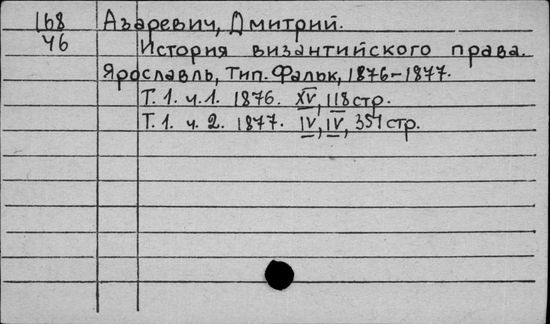 168 Азаревич, Дмитрий.
46 История византийского права.
Ярославль, Тип. Фальк, 1876-1877.
Т. 1. ч. 1. 1876. XV, 118 стр.
Т. 1. ч. 2. 1877. IV, IV, 351 стр.